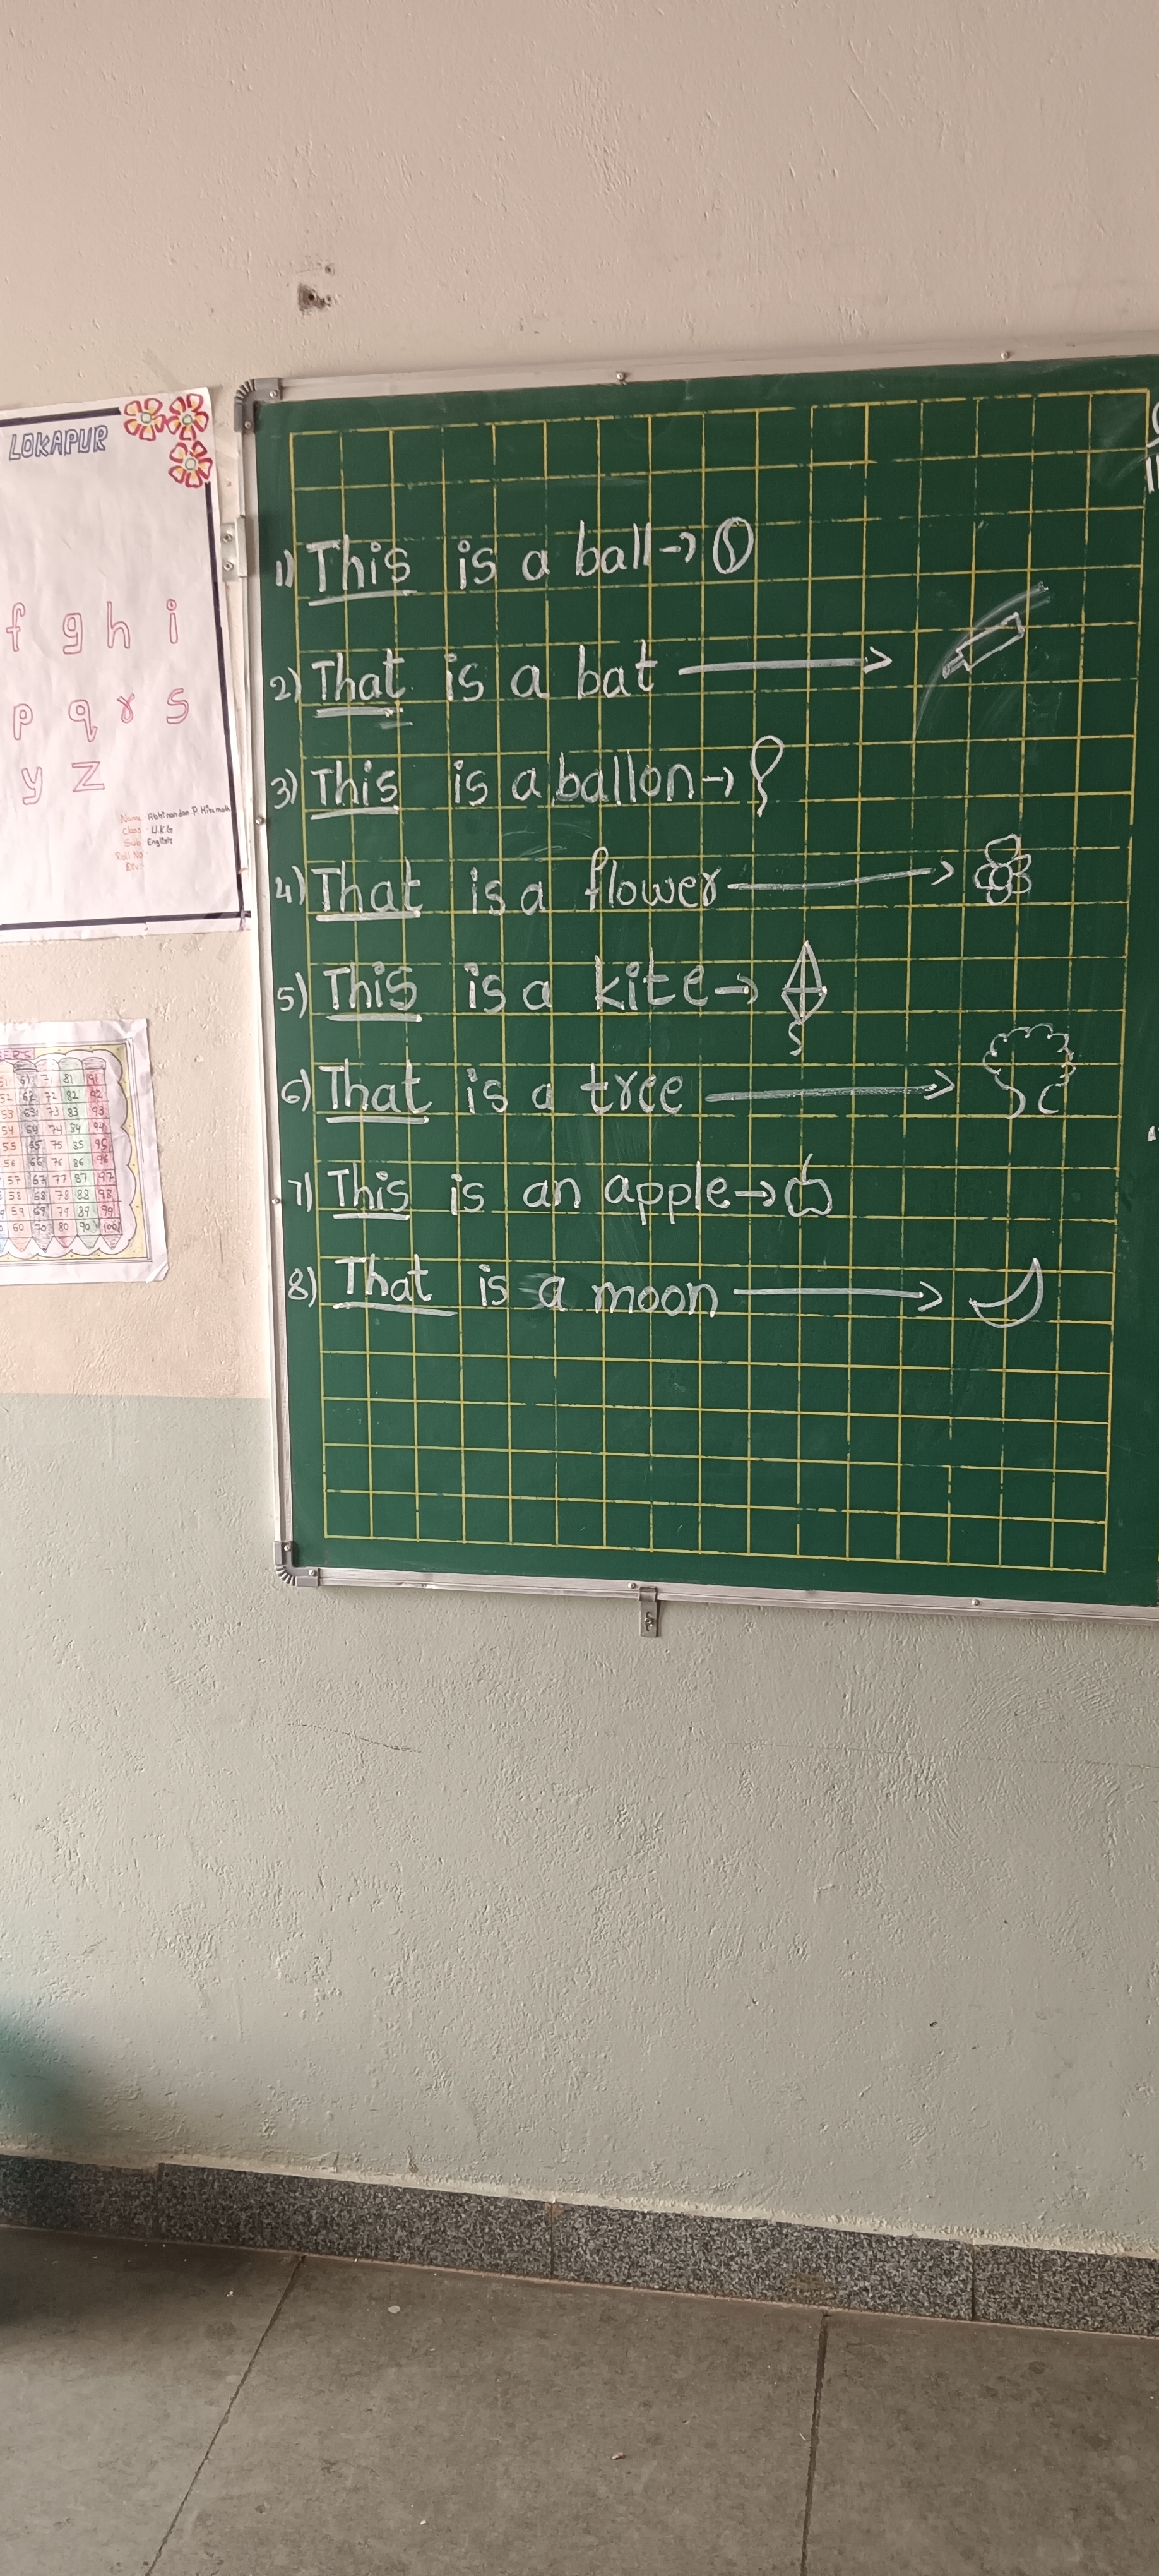 LOKAPUR
f g h i
p q r s
y z
Name Abhinandan P Hiremath
Class U.K.G
Sub English
Roll No
Div:
1) This is a ball →
2) That is a bat →
3) This is a ballon →
4) That is a flower →
5) This is a kite →
6) That is a tree →
7) This is an apple →
8) That is a moon →
51 61 71 81 91
52 62 72 82 92
53 63 73 83 93
54 64 74 84 94
55 65 75 85 95
56 66 76 86 96
57 67 77 87 97
58 68 78 88 98
59 69 79 89 99
60 70 80 90 100